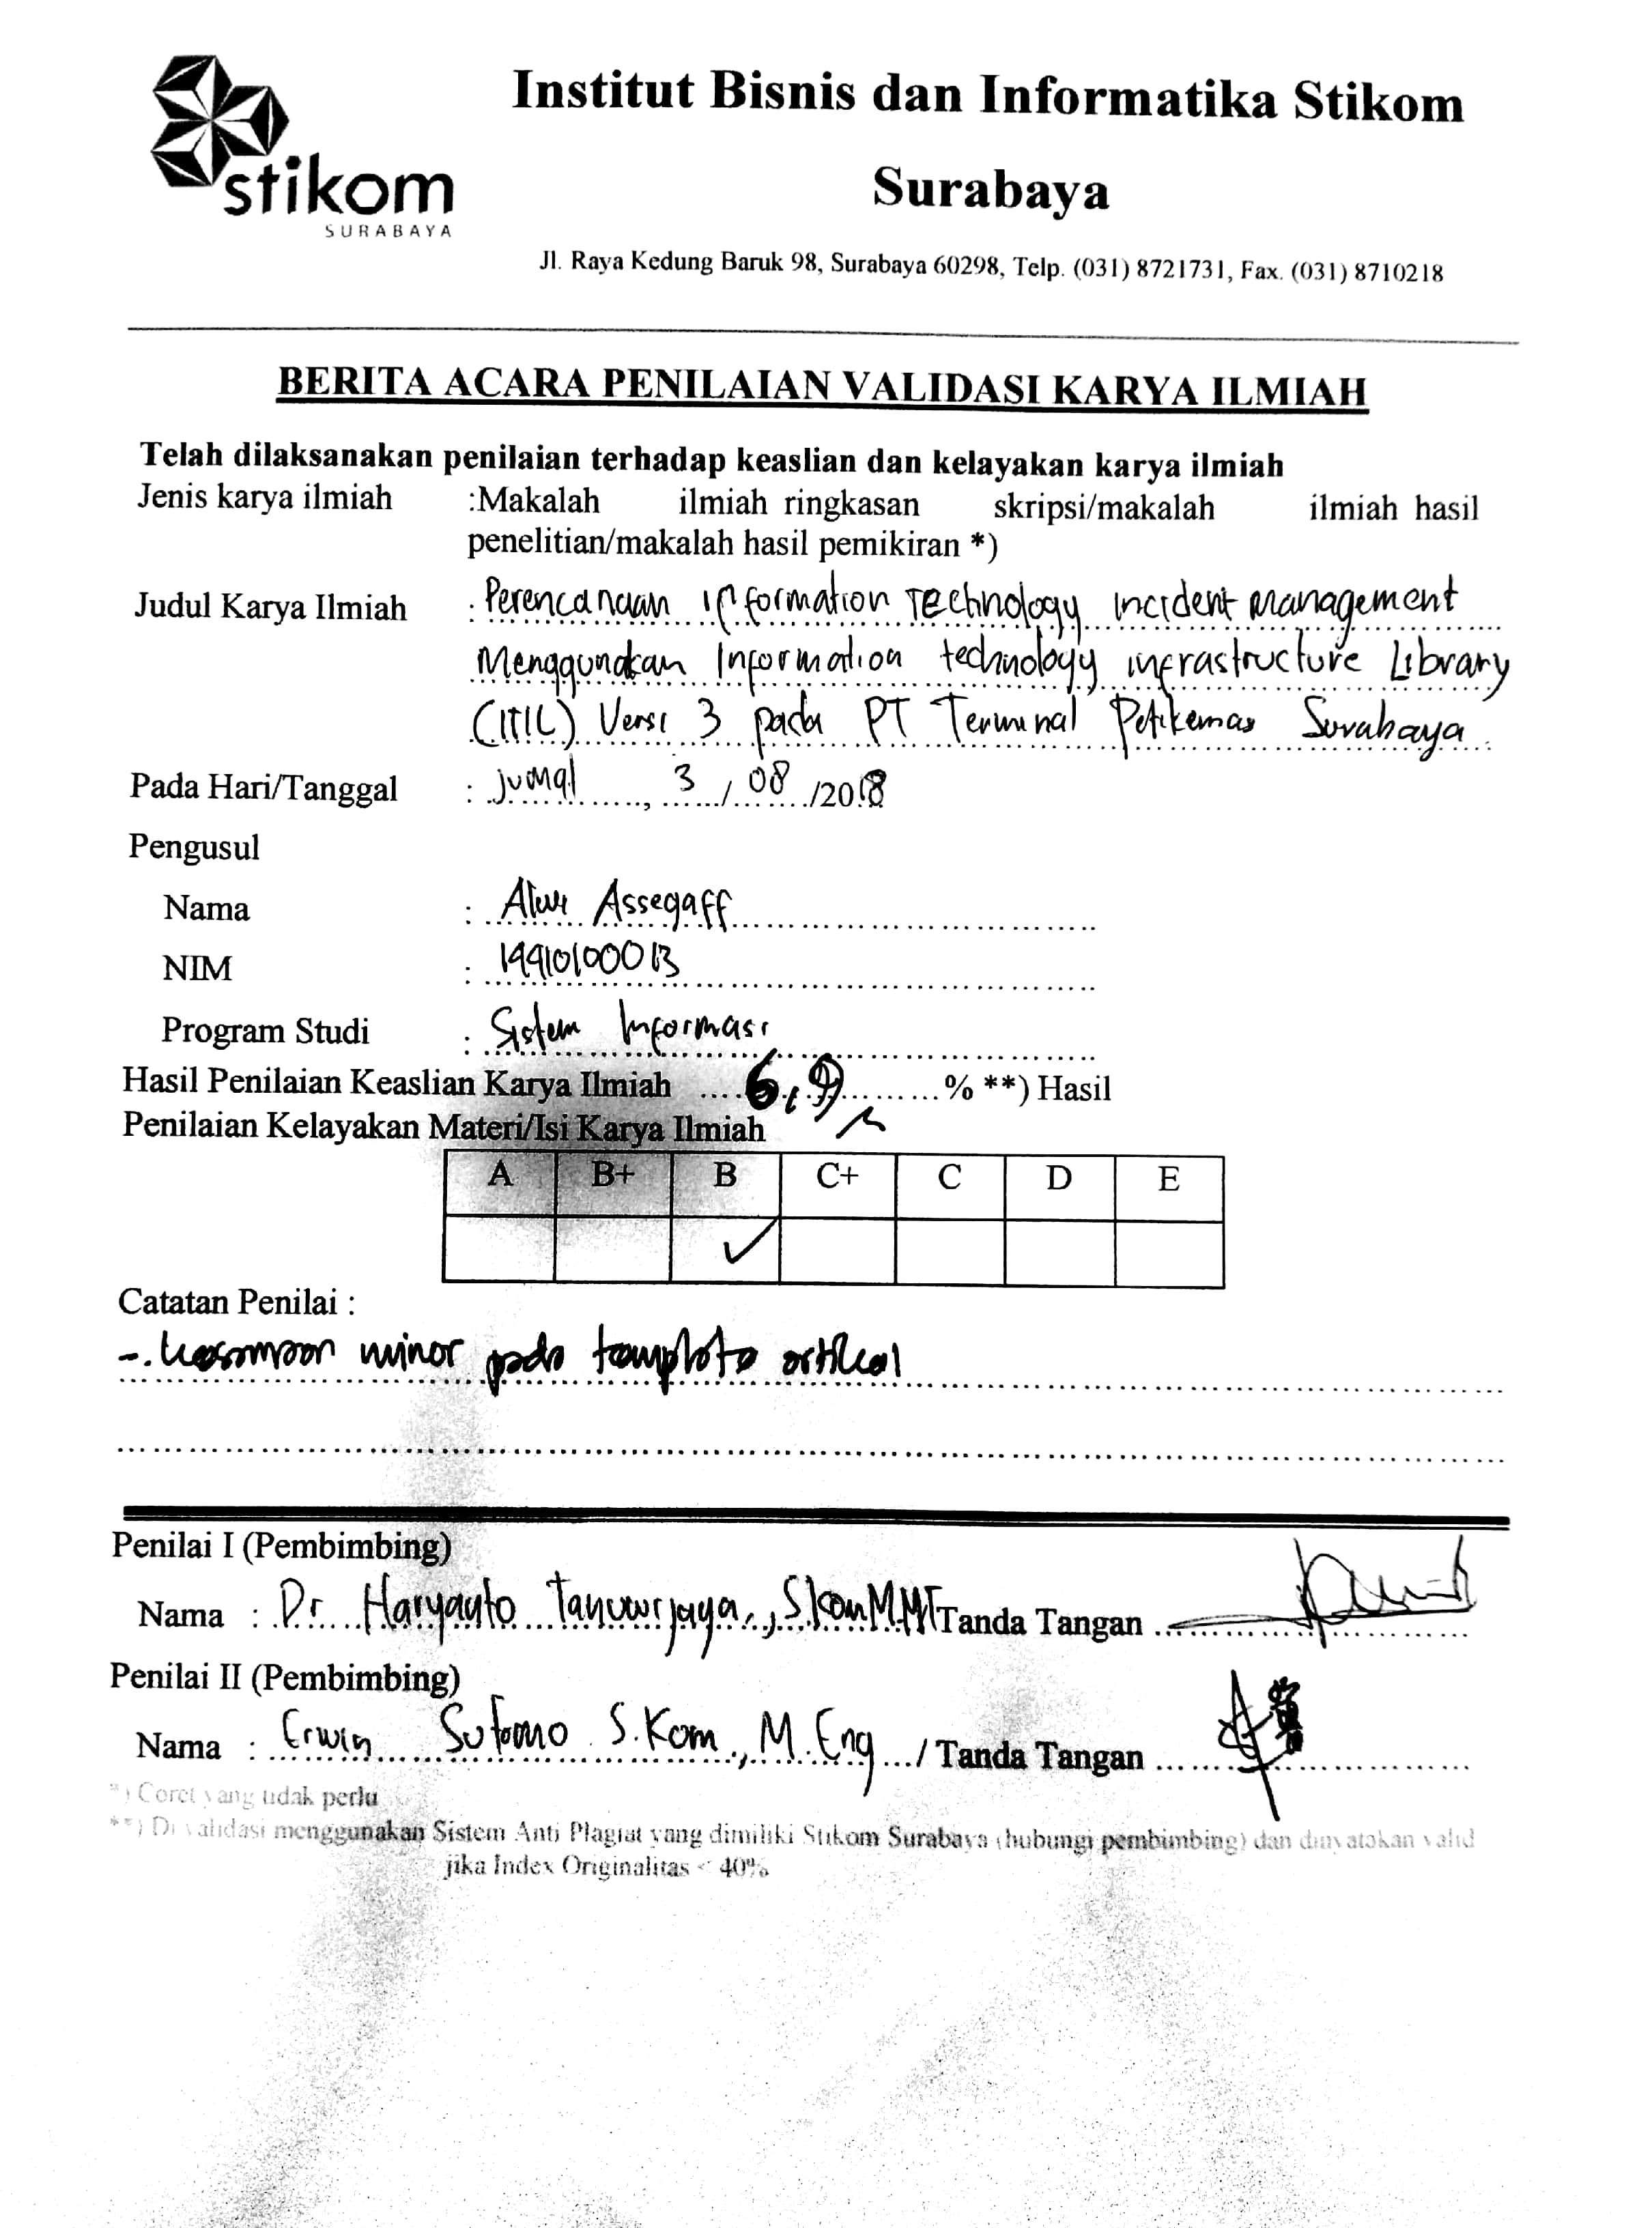 stikom
SURABAYA
Institut Bisnis dan Informatika Stikom
Surabaya
Jl. Raya Kedung Baruk 98, Surabaya 60298, Telp. (031) 8721731, Fax. (031) 8710218
BERITA ACARA PENILAIAN VALIDASI KARYA ILMIAH
Telah dilaksanakan penilaian terhadap keaslian dan kelayakan karya ilmiah
Jenis karya ilmiah :Makalah ilmiah ringkasan skripsi/makalah ilmiah hasil
penelitian/makalah hasil pemikiran *)
Judul Karya Ilmiah : Perencanaan Information Technology incident management
Menggunakan Information technology infrastructure Library
(ITIL) Versi 3 pada PT Terminal Petikemas Surabaya
Pada Hari/Tanggal : jumat, 3 / 08 /2018
Pengusul
Nama : Assegaff
NIM :
Program Studi : Sistem Informasi
Hasil Penilaian Keaslian Karya Ilmiah .... 6,9 ......... % **) Hasil
Penilaian Kelayakan Materi/Isi Karya Ilmiah
A B+ B C+ C D E
✓
Catatan Penilai :
-. minor pada template artikel
Penilai I (Pembimbing)
Nama : Dr. Haryanto Tanuwijaya., S.Kom M.MT Tanda Tangan
Penilai II (Pembimbing)
Nama : Erwin Sutomo S.Kom., M.Eng / Tanda Tangan
*) Coret yang tidak perlu
**) Di validasi menggunakan Sistem Anti Plagiat yang dimiliki Stikom Surabaya (hubungi pembimbing) dan dinyatakan valid
jika Index Originalitas < 40%